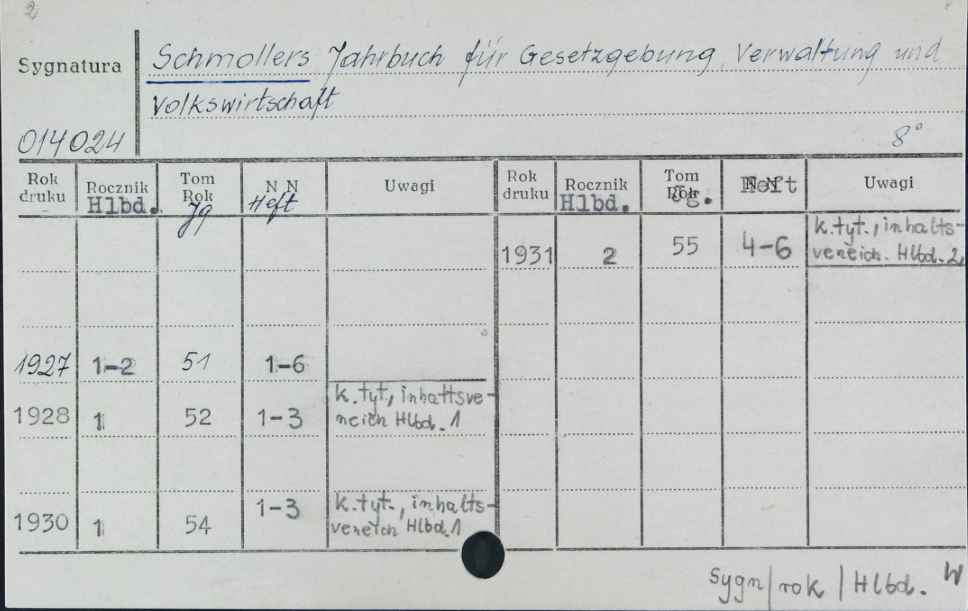 2
Sygnatura
Schmollers Jahrbuch für Gesetzgebung, Verwaltung und
Volkswirtschaft
014024
8°
Rok druku Rocznik Hlbd. Tom Rok Jg N N Heft Uwagi Rok druku Rocznik Hlbd. Tom Rok Jg. Heft Uwagi
1931 2 55 4-6 k.tyt., inhalts-
vereich. Hlbd. 2
1927 1-2 51 1-6
1928 1 52 1-3 k.tyt., inhaltsve-
reich Hlbd. 1
1930 1 54 1-3 k.tyt., inhalts-
vereich Hlbd. 1
Sygn/rok/Hlbd. W